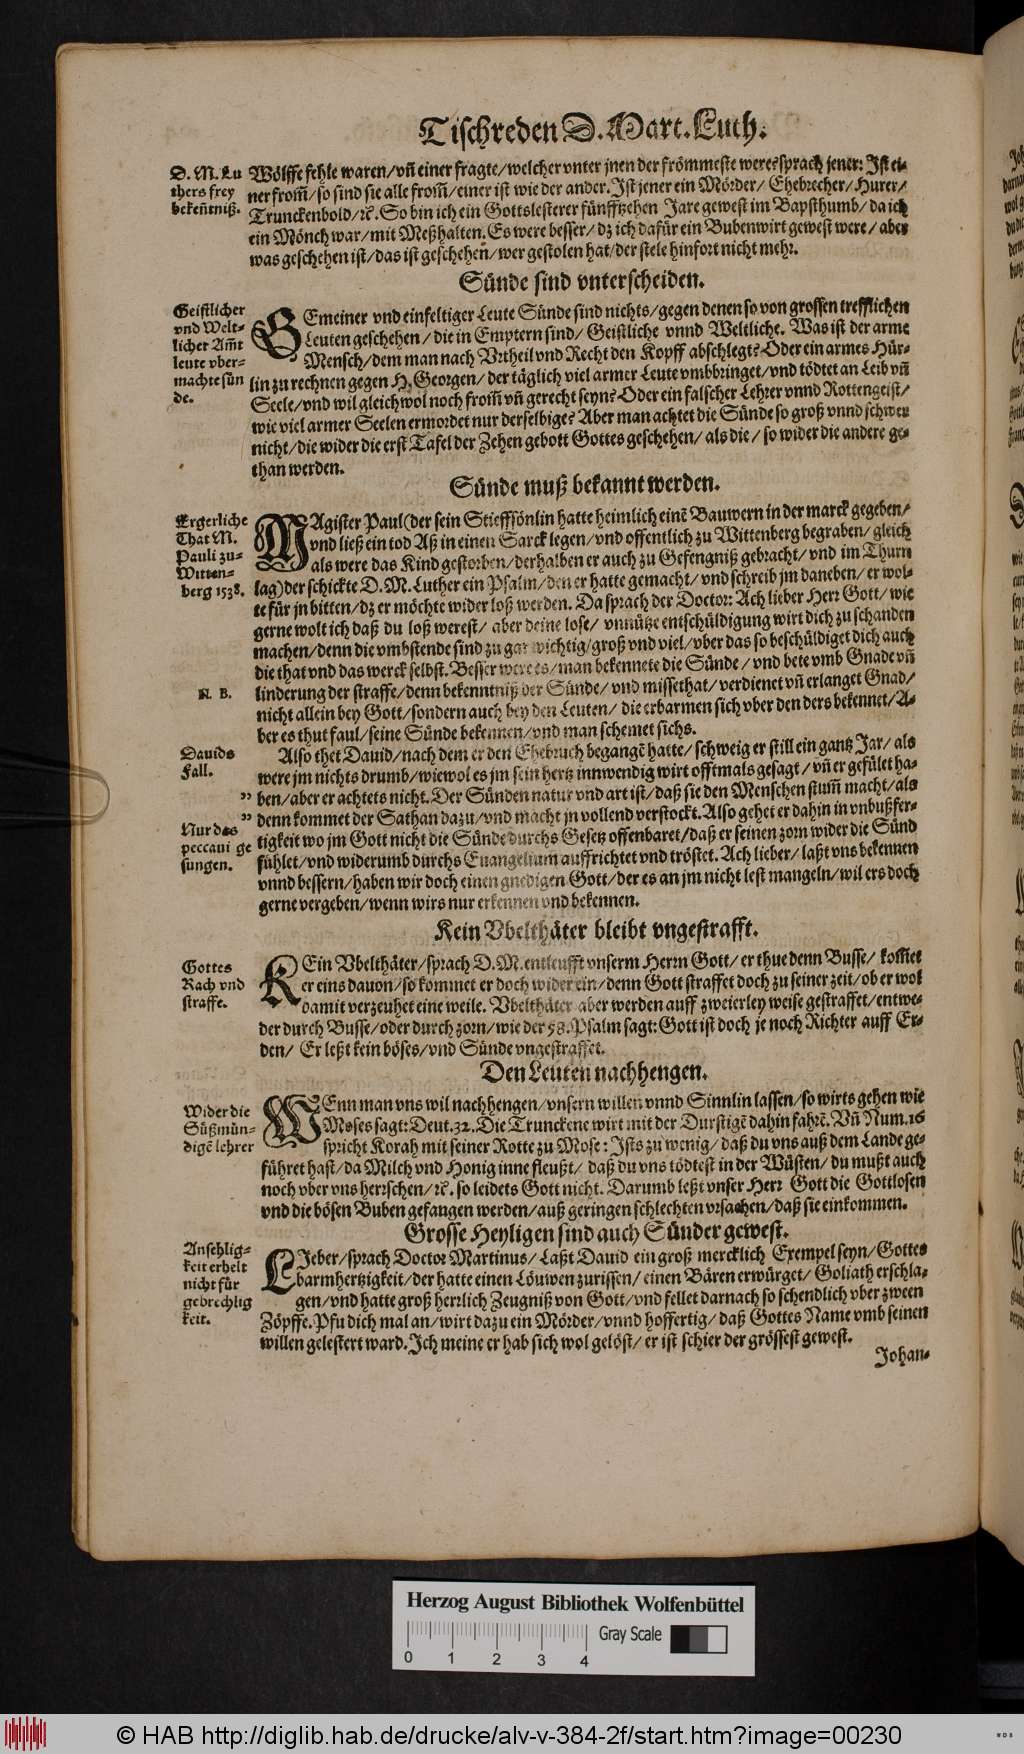 Tischreden D. Mart. Luth.
D. M. Lu
thers frey
bekeñtniß.
Wölffe fehle waren/vñ einer fragte/welcher vnter jnen der frömmeste were? sprach jener: Ist ei-
ner from̃/so sind sie alle from̃/einer ist wie der ander. Ist jener ein Mörder/ Ehebrecher/ Hurer/
Trunckenbold/ ꝛc̃. So bin ich ein Gottslesterer fünfftzehen Jare gewest im Bapsthumb/ da ich
ein Mönch war/ mit Meßhalten. Es were besser/ dz ich dafür ein Bubenwirt gewest were/ aber
was geschehen ist/das ist geschehen/ wer gestolen hat/der stele hinfort nicht mehr.
Sünde sind vnterscheiden.
Geistlicher
vnd Welt-
licher Am̃t
leute vber-
machte sün
de.
GEmeiner vnd einfeltiger Leute Sünde sind nichts/gegen denen so von grossen trefflichen
Leuten geschehen/ die in Emptern sind/ Geistliche vnnd Weltliche. Was ist der arme
Mensch/dem man nach Vrtheil vnd Recht den Kopff abschlegt? Oder ein armes Hür-
lin zu rechnen gegen H. Georgen/ der täglich viel armer Leute vmbbringet/vnd tödtet an Leib vñ
Seele/vnd wil gleichwol noch from̃ vñ gerecht seyn? Oder ein falscher Lehrer vnnd Rottengeist/
wie viel armer Seelen ermordet nur derselbige? Aber man achtet die Sünde so groß vnnd schwer
nicht/die wider die erst Tafel der Zehen gebott Gottes geschehen/ als die/ so wider die andere ge-
than werden.
Sünde muß bekannt werden.
Ergerliche
That M.
Pauli zu-
Witten-
berg 1538.
MAgister Paul (der sein Stieffsönlin hatte heimlich einẽ Bauwern in der marck gegeben/
vnd ließ ein tod Aß in einen Sarck legen/ vnd offentlich zu Wittenberg begraben/ gleich
als were das Kind gestorben/derhalben er auch zu Gefengniß gebracht/ vnd im Thurn
lag) der schickte D. M. Luther ein Psalm/den er hatte gemacht/ vnd schreib jm daneben/ er wol-
te für jn bitten/ dz er möchte wider loß werden. Da sprach der Doctor: Ach lieber Herr Gott/ wie
gerne wolt ich daß du loß werest/ aber deine lose/ vnnütze entschüldigung wirt dich zu schanden
machen/denn die vmbstende sind zu gar wichtig/groß vnd viel/ vber das so beschüldiget dich auch
die that vnd das werck selbst. Besser were es/man bekennete die Sünde/ vnd bete vmb Gnade vñ
N. B.
linderung der straffe/denn bekenntniß der Sünde/ vnd missethat/ verdienet vñ erlanget Gnad/
nicht allein bey Gott/sondern auch bey den Leuten/ die erbarmen sich vber den ders bekennet/A-
ber es thut faul/seine Sünde bekennen/vnd man schemet sichs.
Dauids
Fall.
Also thet Dauid/nach dem er den Ehebruch begangẽ hatte/ schweig er still ein gantz Jar/ als
were jm nichts drumb/wiewol es jm sein hertz innwendig wirt offtmals gesagt/ vñ er gefület ha-
” ben/aber er achtets nicht. Der Sünden natur vnd art ist/daß sie den Menschen stum̃ macht/als
” denn kommet der Sathan dazu/vnd macht jn vollend verstockt. Also gehet er dahin in vnbußfer-
Nur das
peccaui ge
sungen.
tigkeit wo jm Gott nicht die Sünde durchs Gesetz offenbaret/daß er seinen zorn wider die Sünd
fühlet/vnd widerumb durchs Euangelium auffrichtet vnd tröstet. Ach lieber/ laßt vns bekennen
vnnd bessern/haben wir doch einen gnedigen Gott/der es an jm nicht lest mangeln/wil ers doch
gerne vergeben/wenn wirs nur erkennen vnd bekennen.
Kein Vbelthäter bleibt vngestrafft.
Gottes
Rach vnd
straffe.
KEin Vbelthäter/sprach D. M. entleufft vnserm Herrn Gott/ er thue denn Busse/ kom̃et
er eins dauon/so kommet er doch wider ein/denn Gott straffet doch zu seiner zeit/ob er wol
damit verzeuhet eine weile. Vbelthäter aber werden auff zweierley weise gestraffet/entwe-
der durch Busse/oder durch zorn/wie der 58. Psalm sagt: Gott ist doch je noch Richter auff Er-
den/ Er leßt kein böses/vnd Sünde vngestraffet.
Den Leuten nachhengen.
Wider die
Süßmün-
digẽ lehrer
WEnn man vns wil nachhengen/vnsern willen vnnd Sinnlin lassen/so wirts gehen wie
Moses sagt: Deut. 32. Die Trunckene wirt mit der Durstigẽ dahin fahrẽ. Vñ Num. 16
spricht Korah mit seiner Rotte zu Mose: Ists zu wenig/ daß du vns auß dem Lande ge-
führet hast/da Milch vnd Honig inne fleußt/ daß du vns tödtest in der Wüsten/du mußt auch
noch vber vns herrschen/ꝛc̃. so leidets Gott nicht. Darumb leßt vnser Herr Gott die Gottlosen
vnd die bösen Buben gefangen werden/auß geringen schlechten vrsachen/daß sie einkommen.
Grosse Heyligen sind auch Sünder gewest.
Anschlig-
keit erhelt
nicht für
gebrechlig
keit.
LIeber/sprach Doctor Martinus/ Laßt Dauid ein groß mercklich Exempel seyn/Gottes
barmhertzigkeit/der hatte einen Löuwen zurissen/ einen Bären erwürget/ Goliath erschla-
gen/vnd hatte groß herrlich Zeugniß von Gott/vnd fellet darnach so schendlich vber zween
Zöpffe. Pfu dich mal an/wirt dazu ein Mörder/vnnd hoffertig/ daß Gottes Name vmb seinen
willen gelestert ward. Ich meine er hab sich wol gelöst/ er ist schier der grössest gewest.
Johan-
Herzog August Bibliothek Wolfenbüttel
Gray Scale
0 1 2 3 4
© HAB http://diglib.hab.de/drucke/alv-v-384-2f/start.htm?image=00230